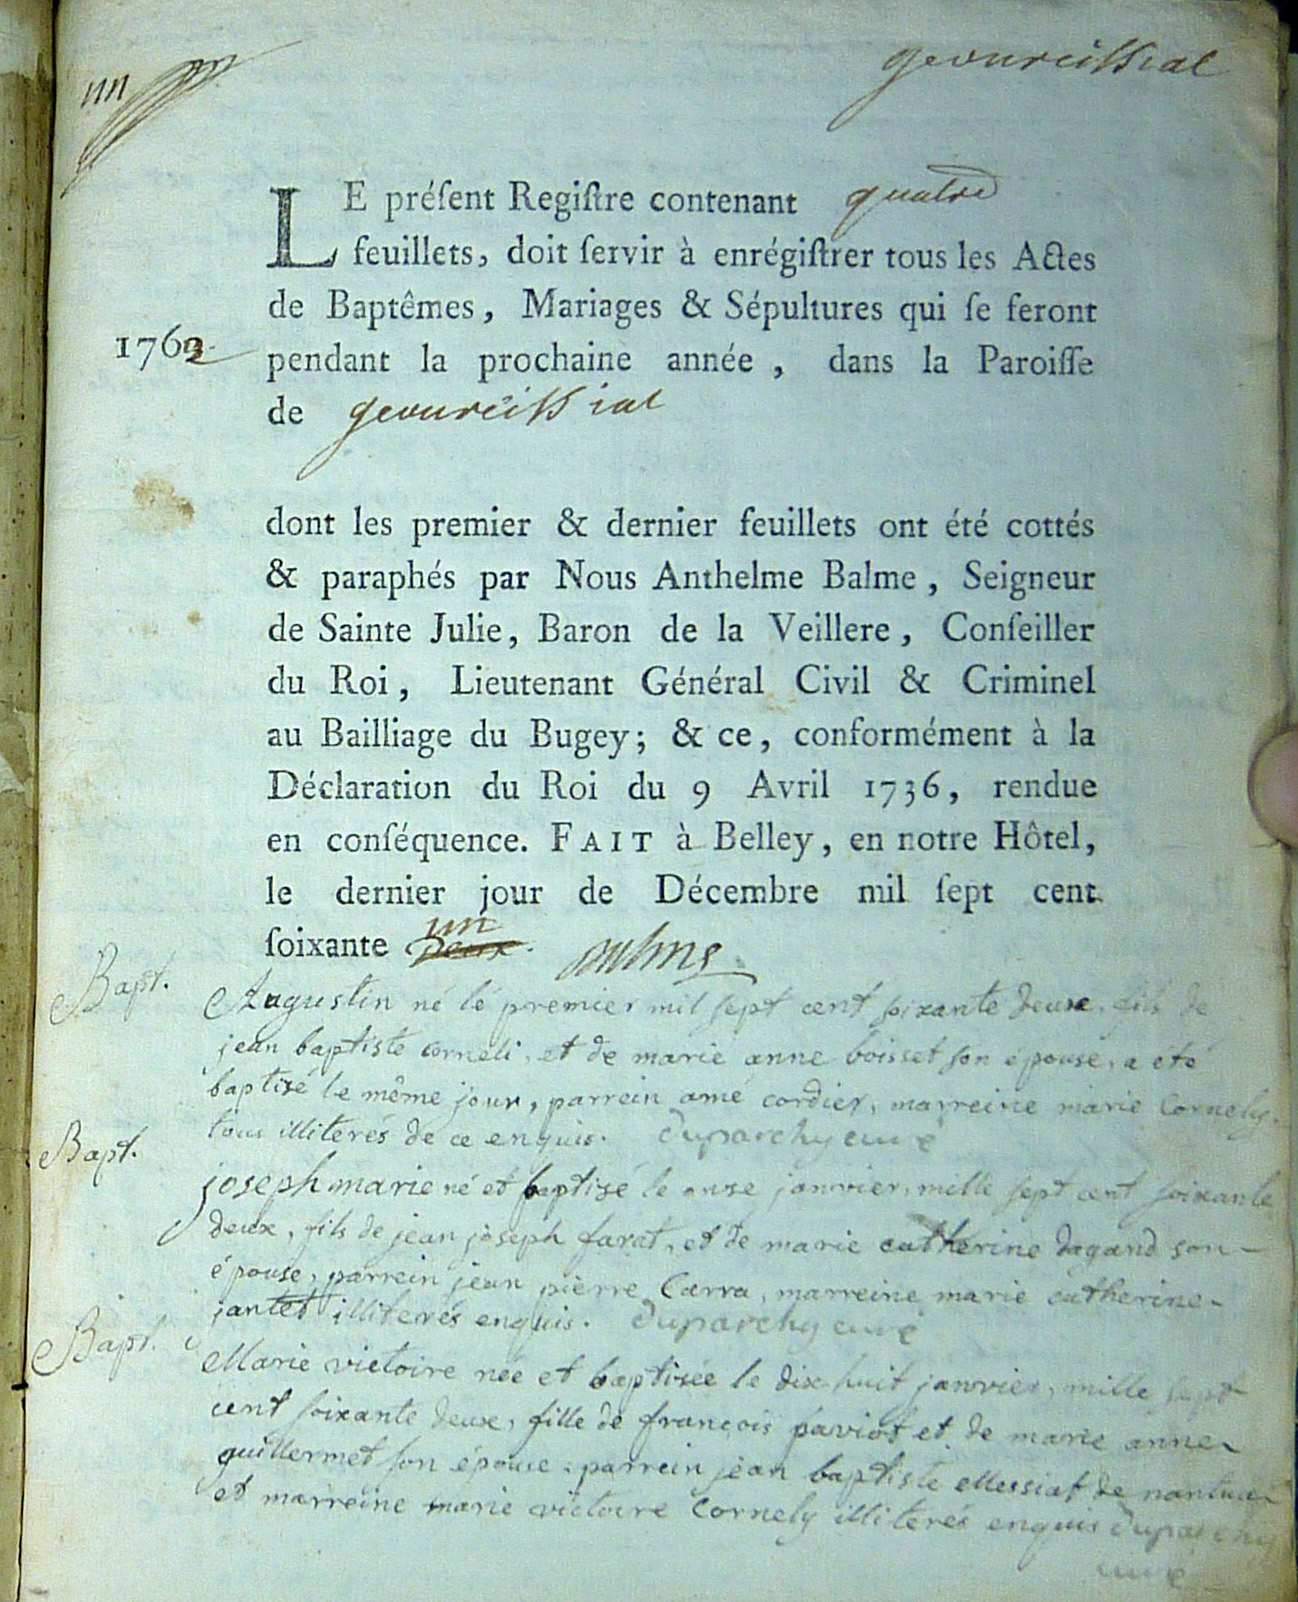 geovreissiat
LE préſent Regiſtre contenant quatre
feuillets, doit ſervir à enrégiſtrer tous les Actes
de Baptêmes, Mariages & Sépultures qui ſe feront
1762
pendant la prochaine année, dans la Paroiſſe
de geovreissiat
dont les premier & dernier feuillets ont été cottés
& paraphés par Nous Anthelme Balme, Seigneur
de Sainte Julie, Baron de la Veillere, Conſeiller
du Roi, Lieutenant Général Civil & Criminel
au Bailliage du Bugey; & ce, conformément à la
Déclaration du Roi du 9 Avril 1736, rendue
en conſéquence. FAIT à Belley, en notre Hôtel,
le dernier jour de Décembre mil ſept cent
un
ſoixante Deux. Balme
Bapt.
Augustin né le premier mil sept cent soixante deux, fils de
jean baptiste corneli, et de marie anne boisset son épouse, a été
baptisé le même jour, parrein amé cordier, marreine marie Cornely.
tous illiterés de ce enquis. Duparchy curé
Bapt.
joseph marie né et baptisé le onse janvier, mille sept cent soixante
deux, fils de jean joseph farat, et de marie catherine dagand son
épouse, parrein jean pierre Carra, marreine marie catherine
jantet illiterés enquis. Duparchy curé
Bapt.
Marie victoire née et baptisée le dix huit janvier, mille sept
cent soixante deux, fille de françois paviot et de marie anne
guillermet son épouse, parrein jean baptiste Messiat de nantua
et marreine marie victoire Cornely illiteres enquis Duparchy
curé